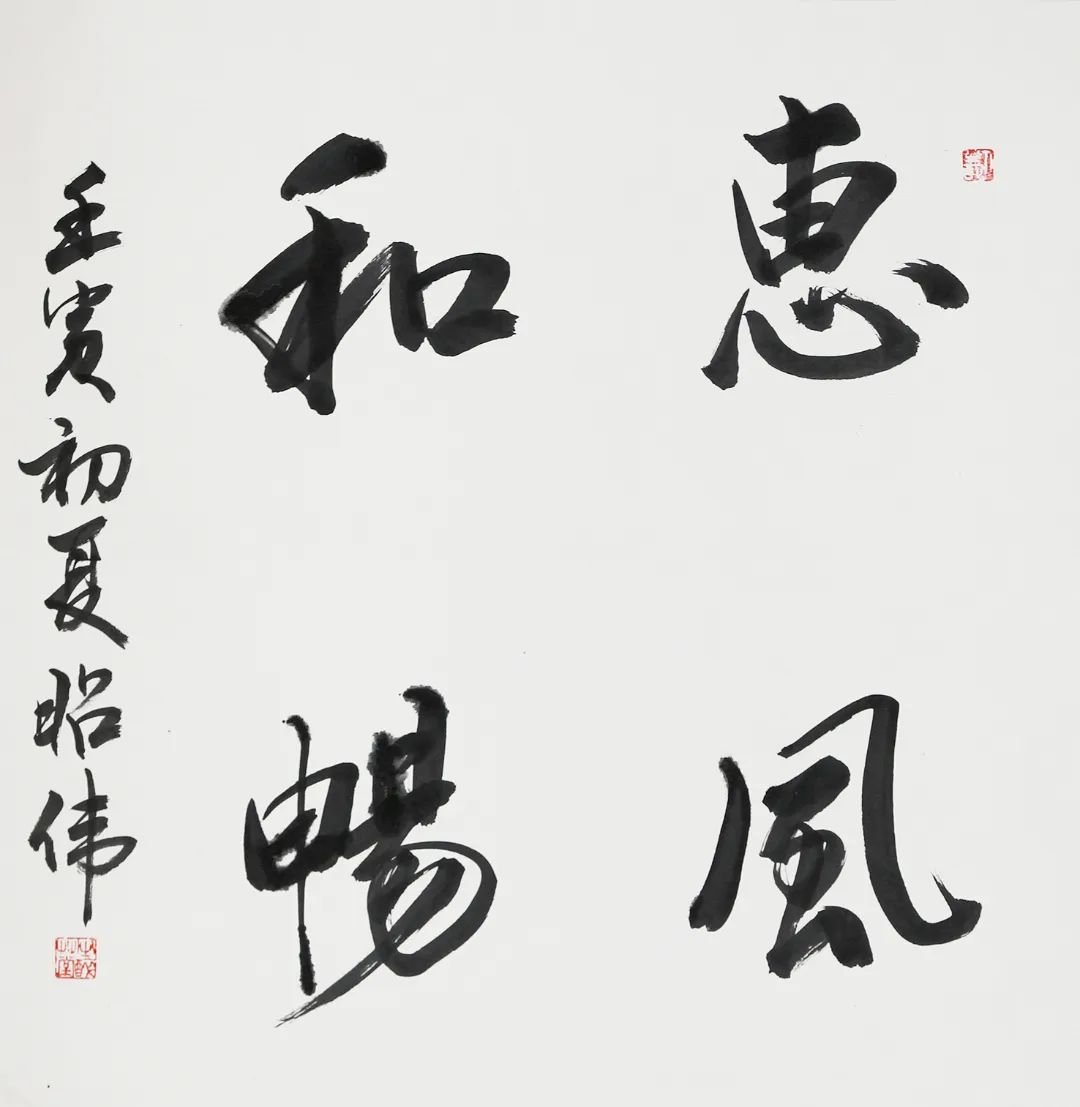 惠風
和暢
壬寅初夏昭伟